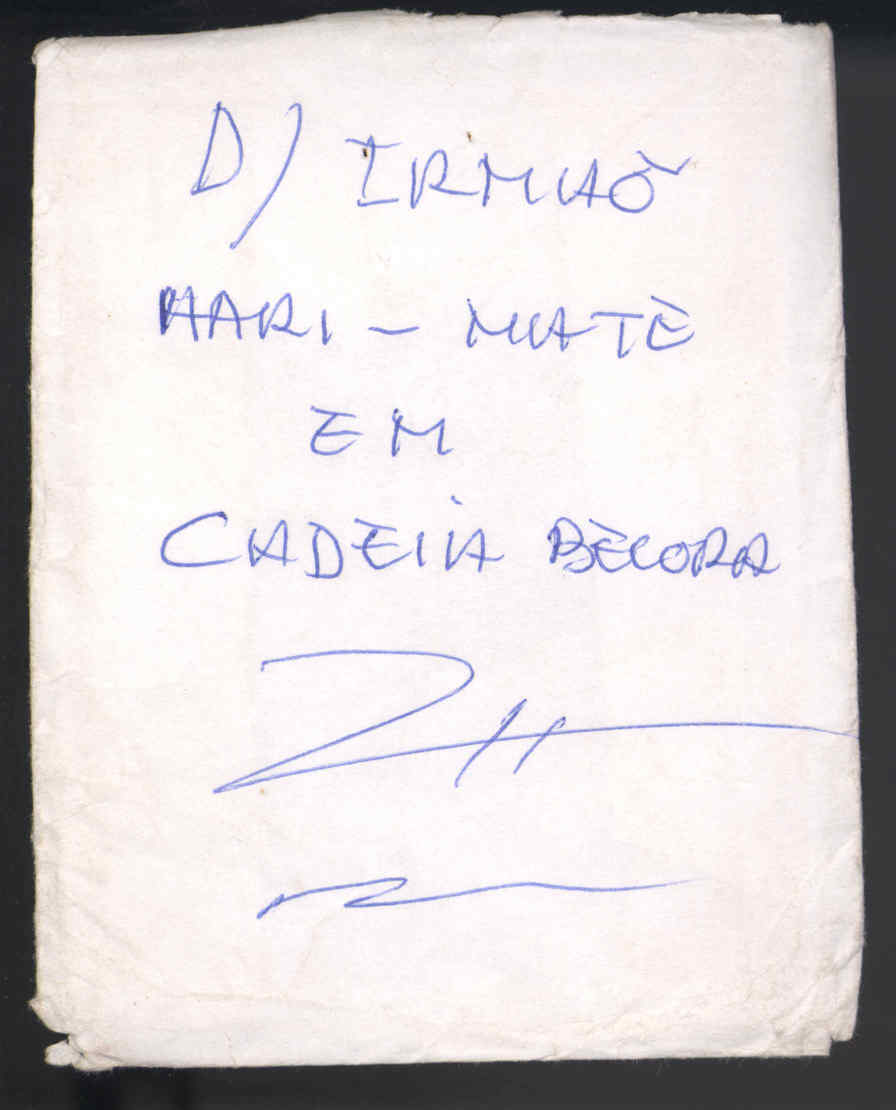 D/ IRMAÕ
MARI - MATE
EM
CADEIA BECORA